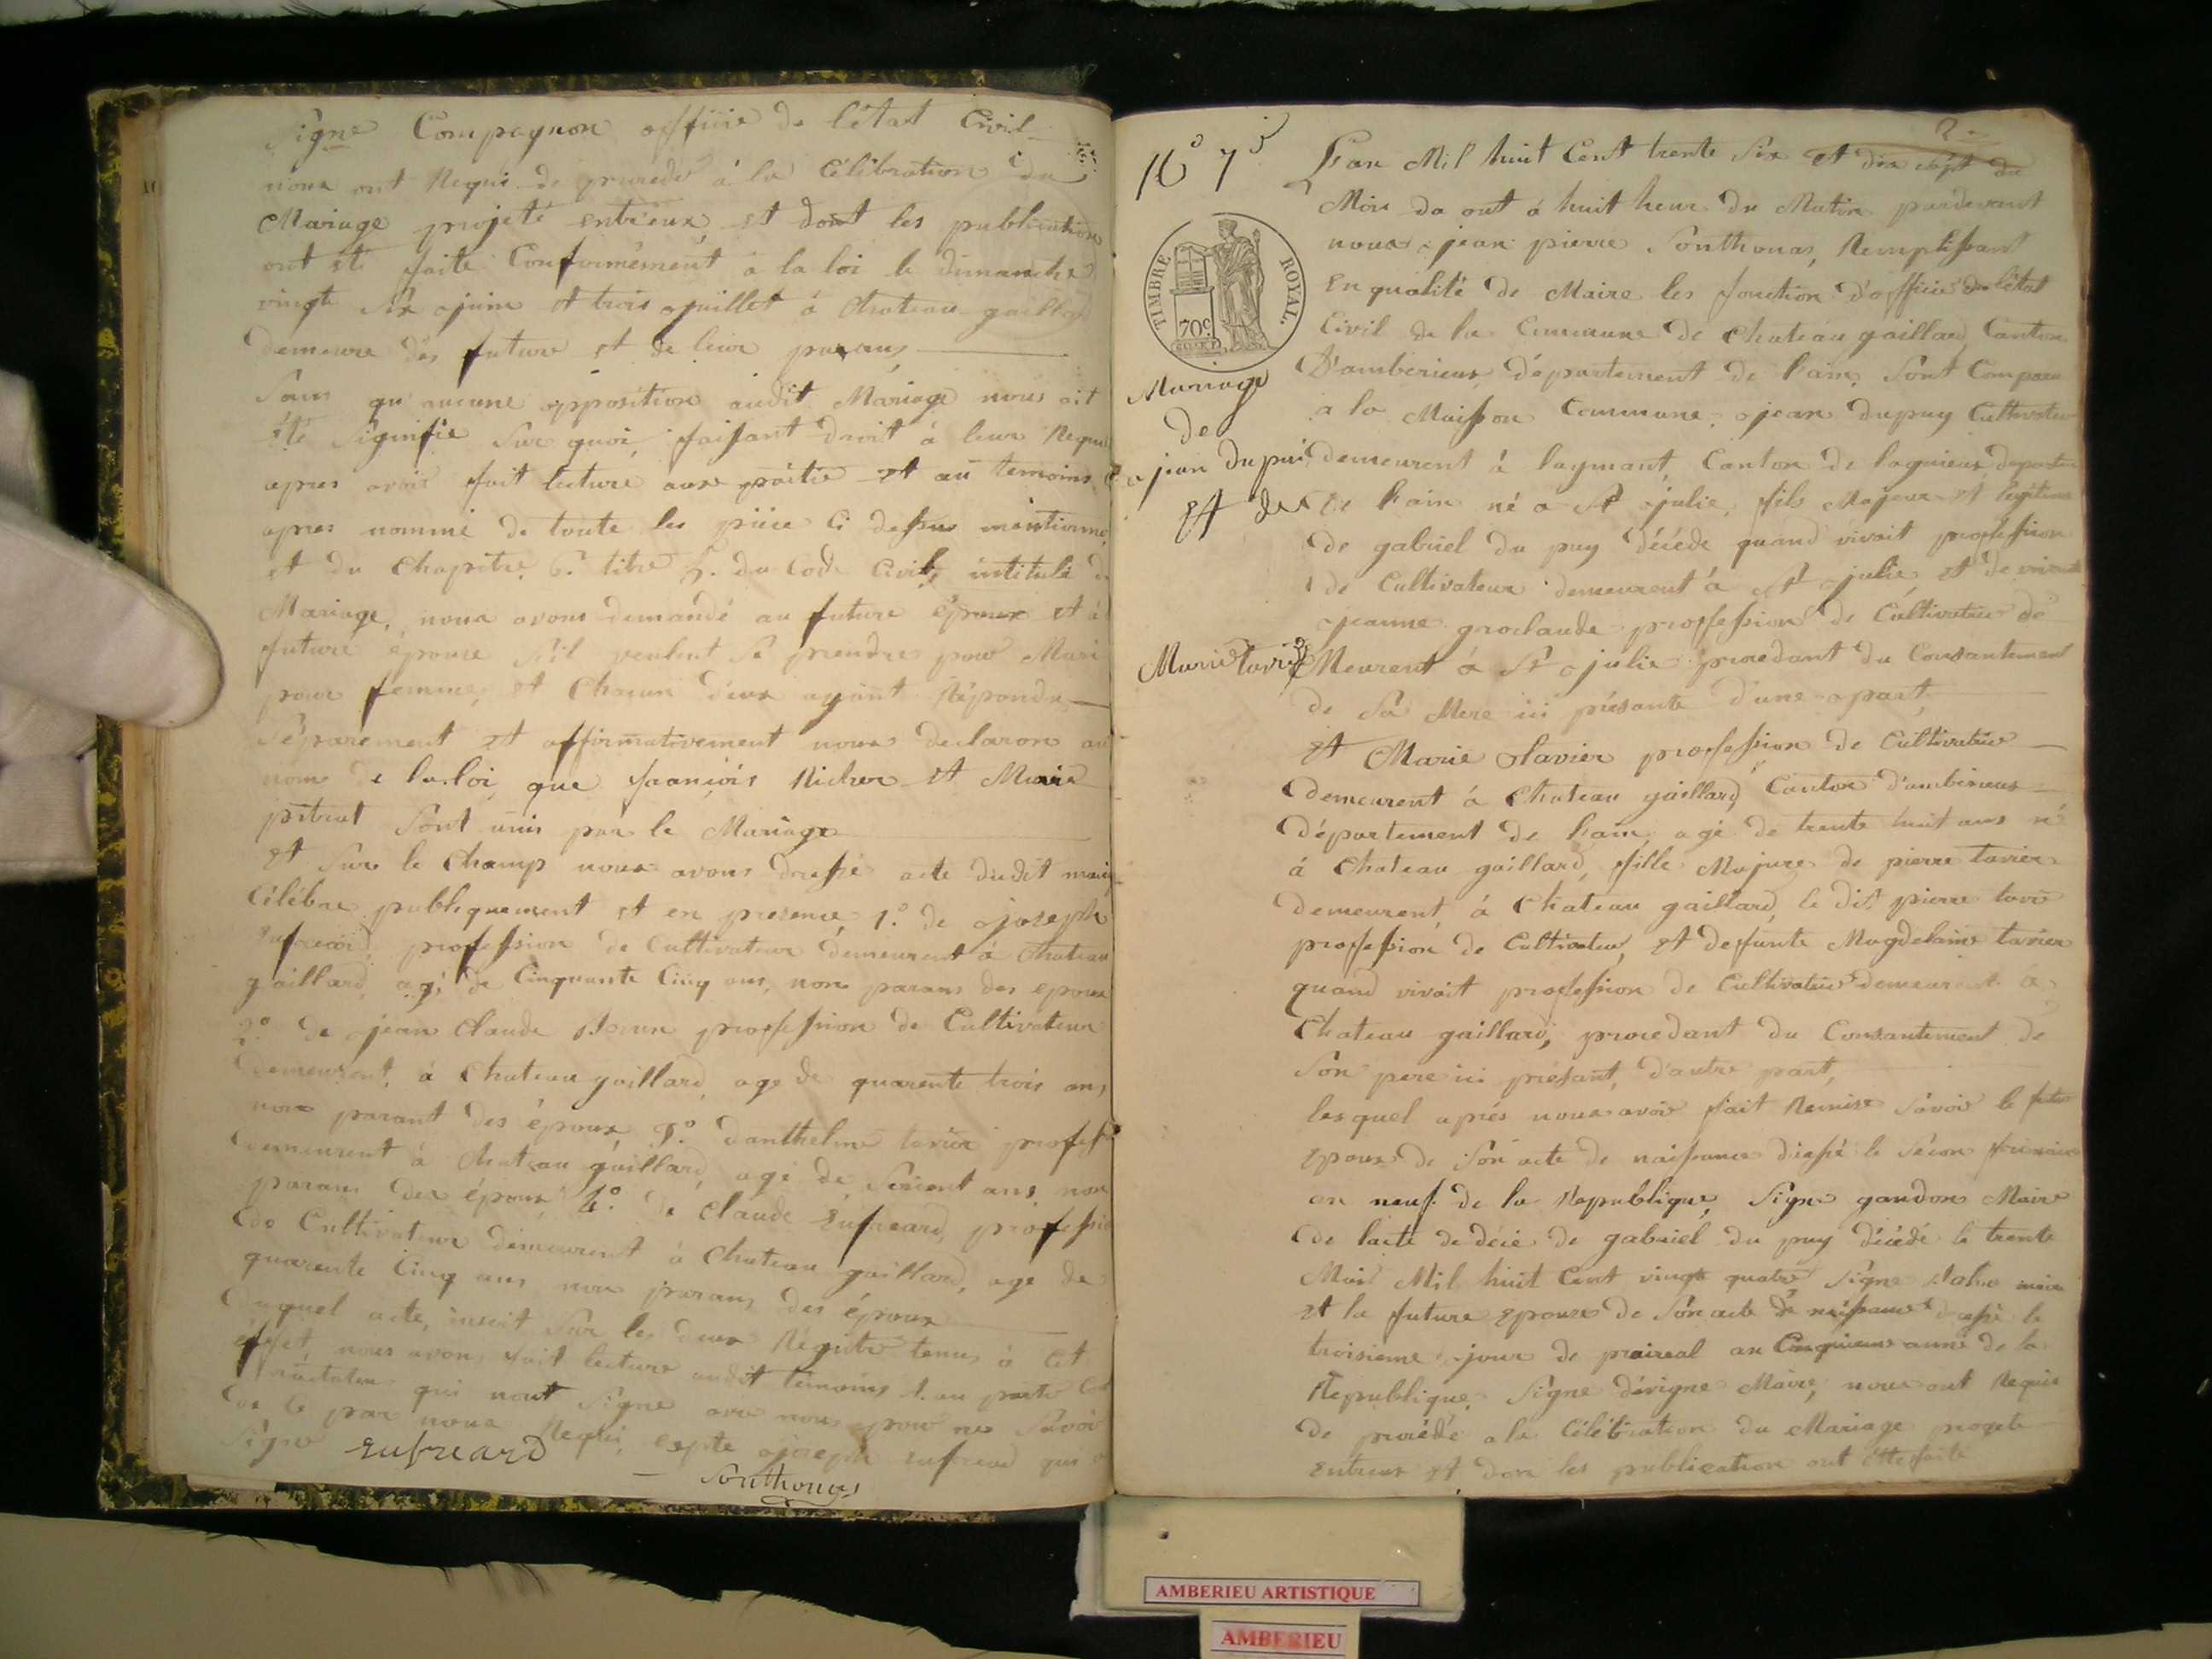 Signe Compagnon officie de l'état Civil
nous ont Requi de procedé à la Célébration du
Mariage projeté entr'eux, et dont les publication
ont été faite Conformément à la loi le dimanche
vingt six juin et trois juillet à chateau gaillard
demeure des future et de leur parans
Sans qu'aucune opposition audit Mariage nous ait
été signifie sur quoi, faisant droit à leur Requi
apres avoir fait lecture aux partie et au temoins
apres nommé de toute les piece Ci dessus mentionné
et du Chapitre 6.e titre 5. du Code Civil, intitulé du
Mariage, nous avons demandé au future époux et à
future épouse s'il veulent se prendre pour Mari
pour femme, et chacun d'eux ayant Répondu
Séparement et affirmativement nous declaron au
nom de la loi, que françois Richer et Marie
pitrat sont unis par le Mariage
et sur le champ nous avons dressé acte dudit maria
Célébré publiquement et en presence, 1.o de joseph
profession de Cultivateur demeurent à chateau
gaillard, agé de Cinquante Cinq ans, non parans des epoux
2.o de jean Claude profession de Cultivateur
demeurent, à Chateau gaillard, age de quarente trois ans
non parant des époux, 3.o d'anthelme tavier profess
demeurent à chateau gaillard, agé de ans non
parans des époux, 4.o de Claude Eufreard, profession
de Cultivateur demeurent à Chateau gaillard, age de
quarente Cinq ans non parans des époux
duquel acte, inscrit sur les deux Régistre tenus à Cet
effet, nous avons fait lecture audit temoins et au partie
qui nont Signe avec nous pour ne Savoir
de le par nous Requis, joseph eufreard qui a
signe Eufreard
Sonthonas
2.
16o 7
L'an Mil huit Cent trente Six et dix sept du
Mois da out à huit heur du Matin pardevant
nous jean pierre Sonthonas, Remplissant
En qualité de Maire les fonction d'officie de l'état
Civil de la Commune de Chateau gaillard, Canton
D'amberieux, département de l'ain, Sont Comparu
a la Maisson Commune, jean dupuy Cultivateur
demeurent à laymant, Canton de lagnieux departe
de l'ain né a St julie, fils Majeur et legitime
de gabriel du puy décéde quand vivait profession
de Cultivateur demeurent à St julie, et de vivante
jeanne groclaude profession de Cultivatrice de
Meurent à St julie procedant du Consantement
de Sa Mere ici présante d'une part,
et Marie tavier profession de Cultivatrice
demeurent à Chateau gaillard, Canton d'amberieux
département de l'ain, agé de trente huit ans né
à Chateau gaillard, fille Majure de pierre tavier
demeurent, à Chateau gaillard, le dit pierre tavie
profession de Cultivateur, et defunte Magdelaine tavier
quand vivait profession de Cultivatrice demeurent à
Chateau gaillard, procedant du Consantement de
Son pere ici présant, d'autre part,
lesquel aprés nous avoir fait Remise Savoir le futur
epoux de Son acte de naissance dressé le Secon frimaire
an neuf de la Republique, Signe gandon Maire
de lacte de décé de gabriel du puy décédé le trente
Mai Mil huit Cent vingt quatre Signe maire
et la future epouse de Son acte de naissance dressé le
troisieme jour de praireal an Cinquieme anné de la
Republique, Signe dérigne Maire, nous ont Requis
de procédé a la Célébration du Mariage projeté
entreux et don les publication ont été faite
TIMBRE ROYAL.
70c
Mariage
de
jean dupui
et de
Marie tavier
AMBERIEU ARTISTIQUE
AMBERIEU